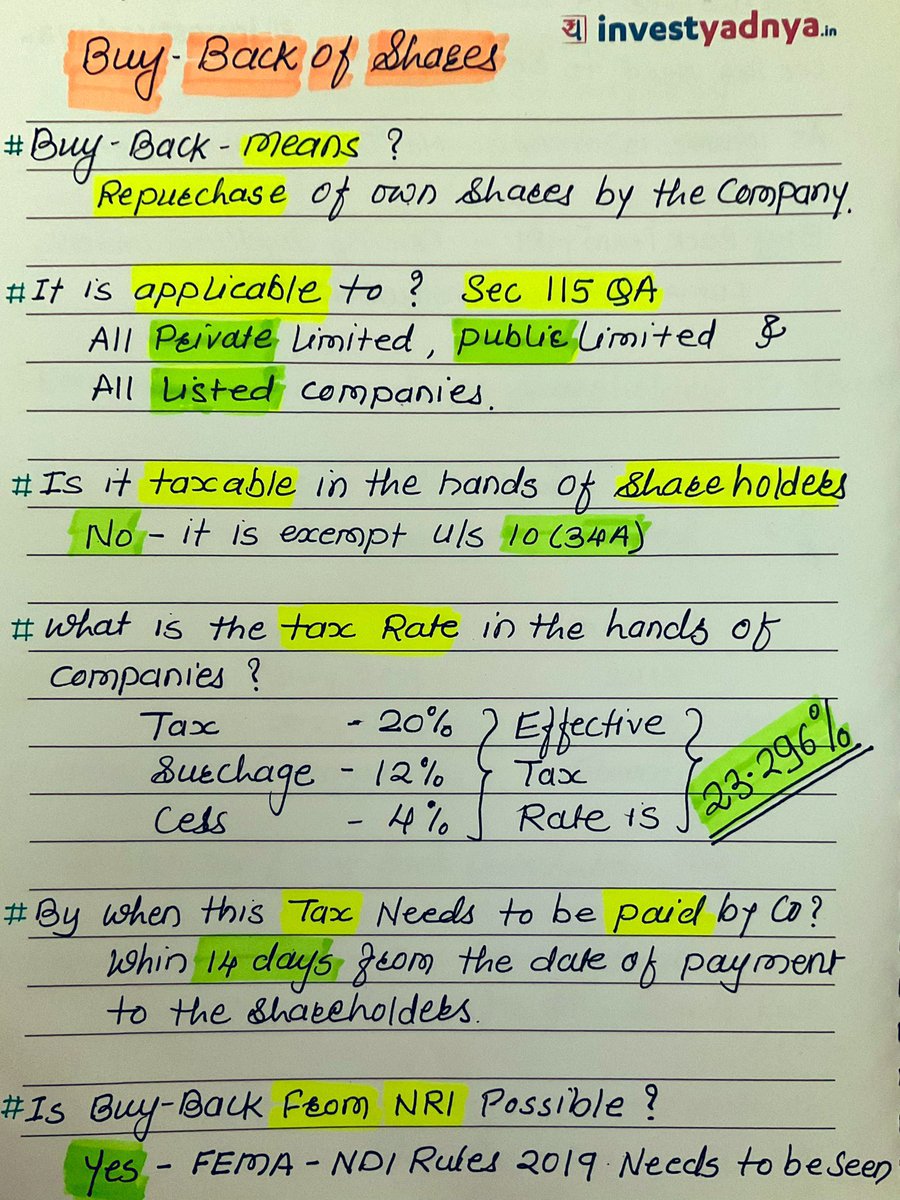 य investyadnya.in
Buy-Back of Shares
# Buy-Back - means ?
Repurchase of own shares by the Company.
# It is applicable to ? Sec 115 QA
All Private Limited, public Limited &
All Listed companies.
# Is it taxable in the hands of shareholders
No - it is exempt u/s 10(34A)
# What is the tax Rate in the hands of
companies ?
Tax - 20% } Effective } 23.296%
Surchage - 12% } Tax
Cess - 4% } Rate is
# By when this Tax Needs to be paid by Co?
Whin 14 days from the date of payment
to the shareholders.
# Is Buy-Back From NRI Possible ?
Yes - FEMA - NDI Rules 2019. Needs to be seen